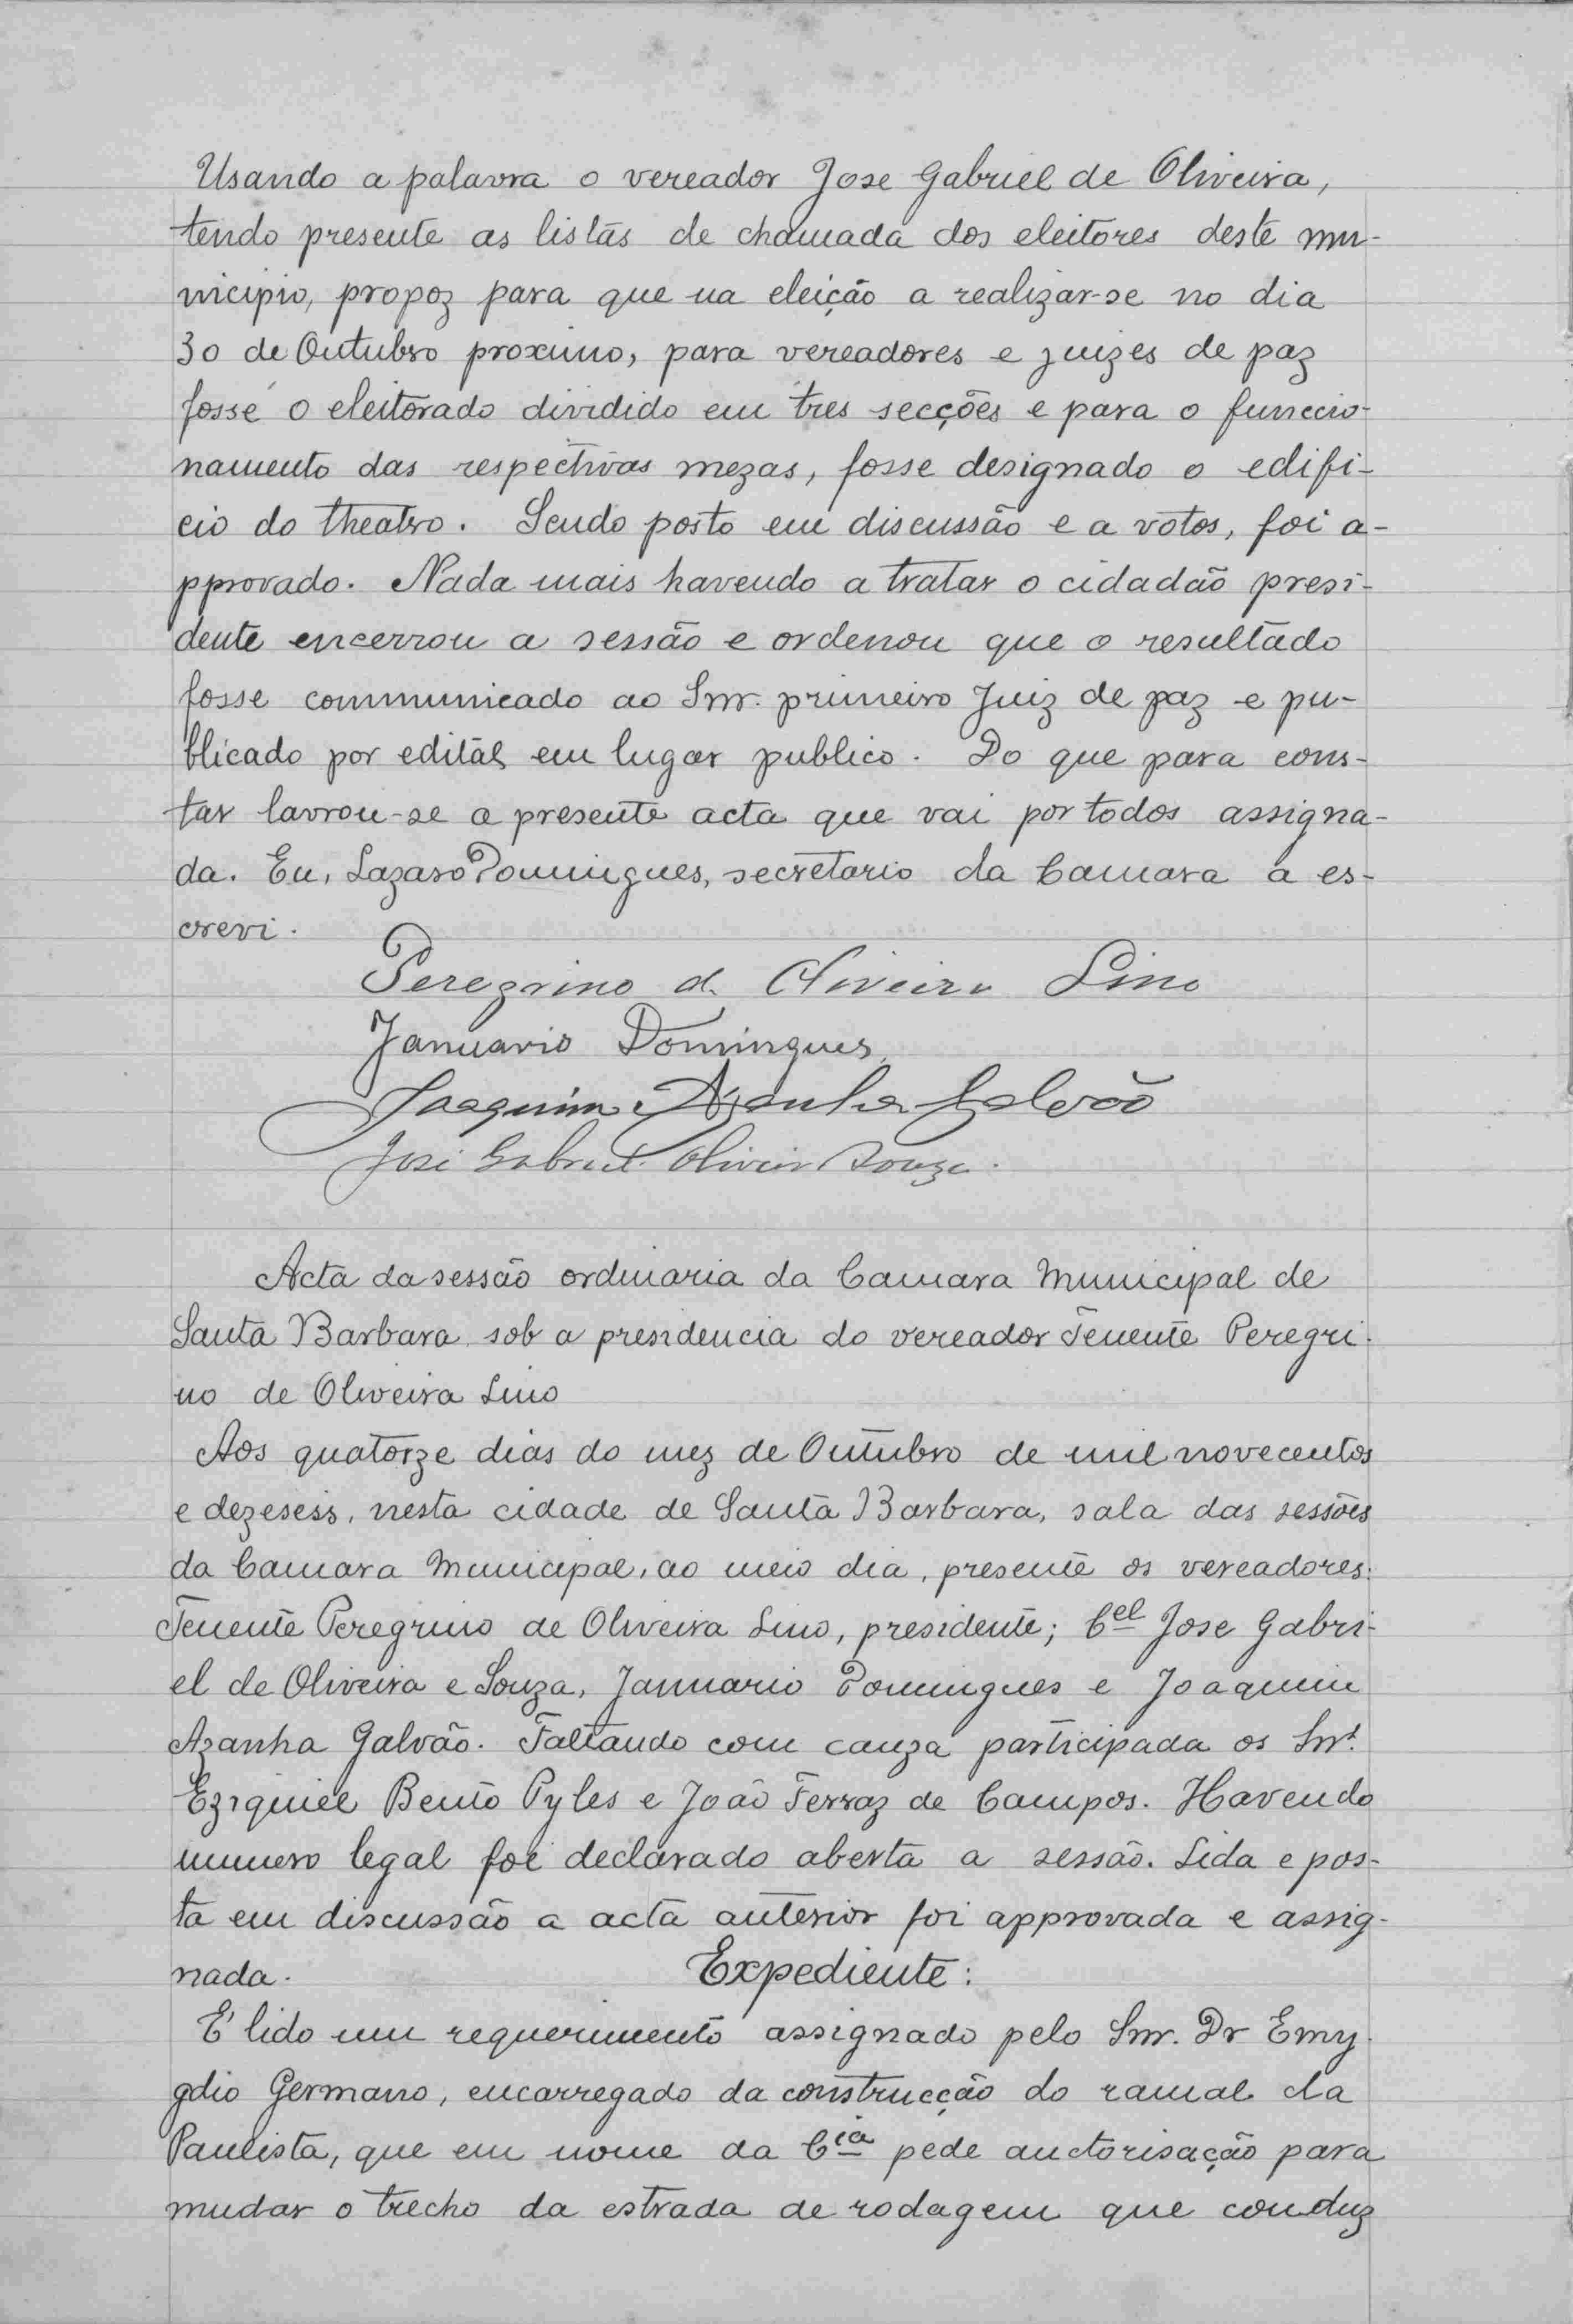 Usando a palavra o vereador Jose Gabriel de Oliveira,
tendo presente as listas de chamada dos eleitores deste mu-
nicipio, propoz para que na eleição a realizar-se no dia
30 de Outubro proximo, para vereadores e juizes de paz
fosse o eleitorado dividido em tres secções e para o funccio-
namento das respectivas mezas, fosse designado o edifi-
cio do theatro. Sendo posto em discussão e a votos, foi a-
pprovado. Nada mais havendo a tratar o cidadão presi-
dente encerrou a sessão e ordenou que o resultado
fosse communicado ao Snr. primeiro Juiz de paz e pu-
blicado por edital em lugar publico. Do que para cons-
tar lavrou-se a presente acta que vai por todos assigna-
da. Eu, Lazaro Domingues, secretario da Camara a es-
crevi.
Peregrino d. Oliveira Lino
Januario Domingues
Joaquim Azanha Galvão
José Gabriel Oliveira Souza.
Acta da sessão ordinaria da Camara Municipal de
Santa Barbara sob a presidencia do vereador Tenente Peregri-
no de Oliveira Lino
Aos quatorze dias do mez de Outubro de mil novecentos
e dezeseis, nesta cidade de Santa Barbara, sala das sessões
da Camara Municipal, ao meio dia, presente os vereadores:
Tenente Peregrino de Oliveira Lino, presidente; Cel Jose Gabri-
el de Oliveira e Souza, Januario Domingues e Joaquim
Azanha Galvão. Faltando com cauza participada os Snrs.
Eziquiel Bento Pyles e João Ferraz de Campos. Havendo
numero legal foi declarado aberta a sessão. Lida e pos-
ta em discussão a acta anterior foi approvada e assig-
nada. Expediente:
E' lido um requerimento assignado pelo Snr. Dr Emy-
gdio Germano, encarregado da construcção do ramal da
Paulista, que em nome da Cia pede auctorisação para
mudar o trecho da estrada de rodagem que conduz